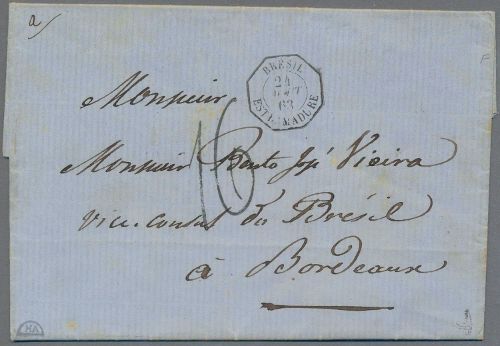 a
BRÉSIL
24
OCT
63
ESTRAMADURE
16
Monsieur
Monsieur Bento José Vieira
vice-consul du Brésil
à Bordeaux